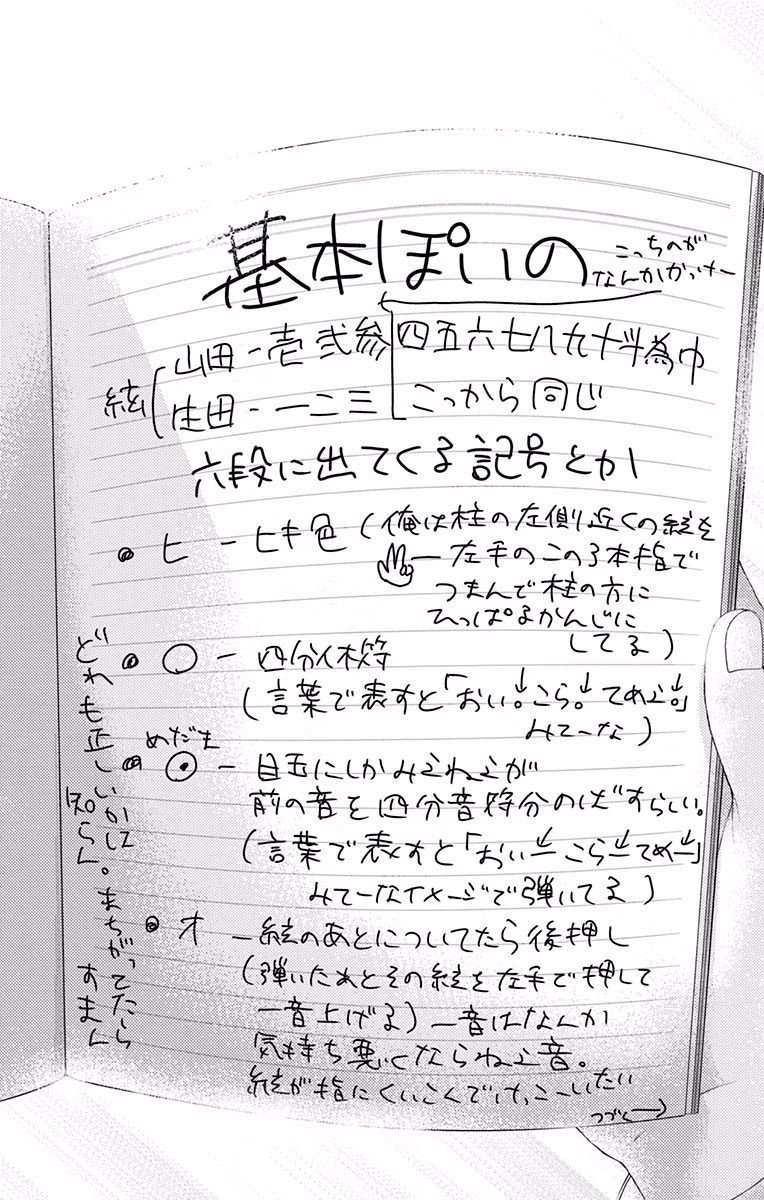 基本ぽいの
こっちのが
なんかかっけー
絃
山田-壱弐参
四五六七八九十斗為巾
生田-一二三
こっから同じ
六段に出てくる記号とか
・ヒ-ヒキ色(俺は柱の左側近くの絃を
-左手のこの3本指で
つまんで柱の方に
ひっぱるかんじに
してる)
・○-四分休符
(言葉で表すと「おい。↓こら。↓てめえ。↓」
みてーな)
めだま
・⦿-目玉にしかみえねえが
前の音を四分音符分のばすらしい。
(言葉で表すと「おいー↓こらー↓てめー↓」
みてーなイメージで弾いてる)
・オ-絃のあとについてたら後押し
(弾いたあとその絃を左手で押して
一音上げる)一音はなんか
気持ち悪くならねえ音。
絃が指にくいこんでけっこーいたい
つづく→
どれも正しいかして
知らん。まちがってたら
すまん